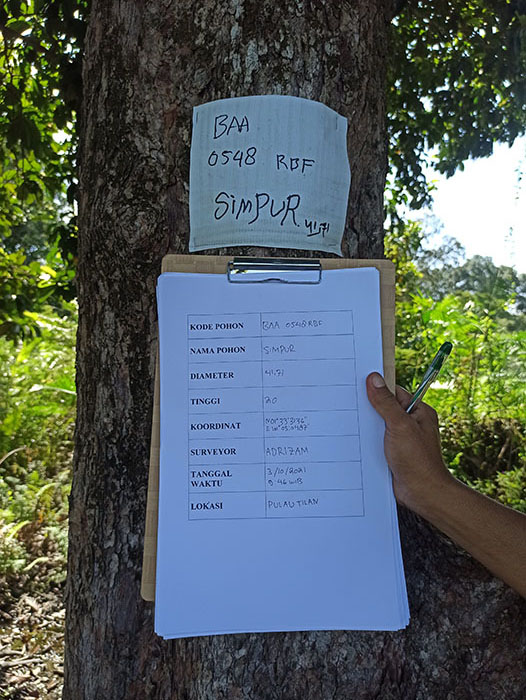 BAA
0548 RBF
SIMPUR 41.71
KODE POHON BAA 0548 RBF
NAMA POHON SIMPUR
DIAMETER 41.71
TINGGI 20
KOORDINAT
SURVEYOR ADRIZAM
TANGGAL 3/10/2021
WAKTU 9:46 WIB
LOKASI PULAU TILAN